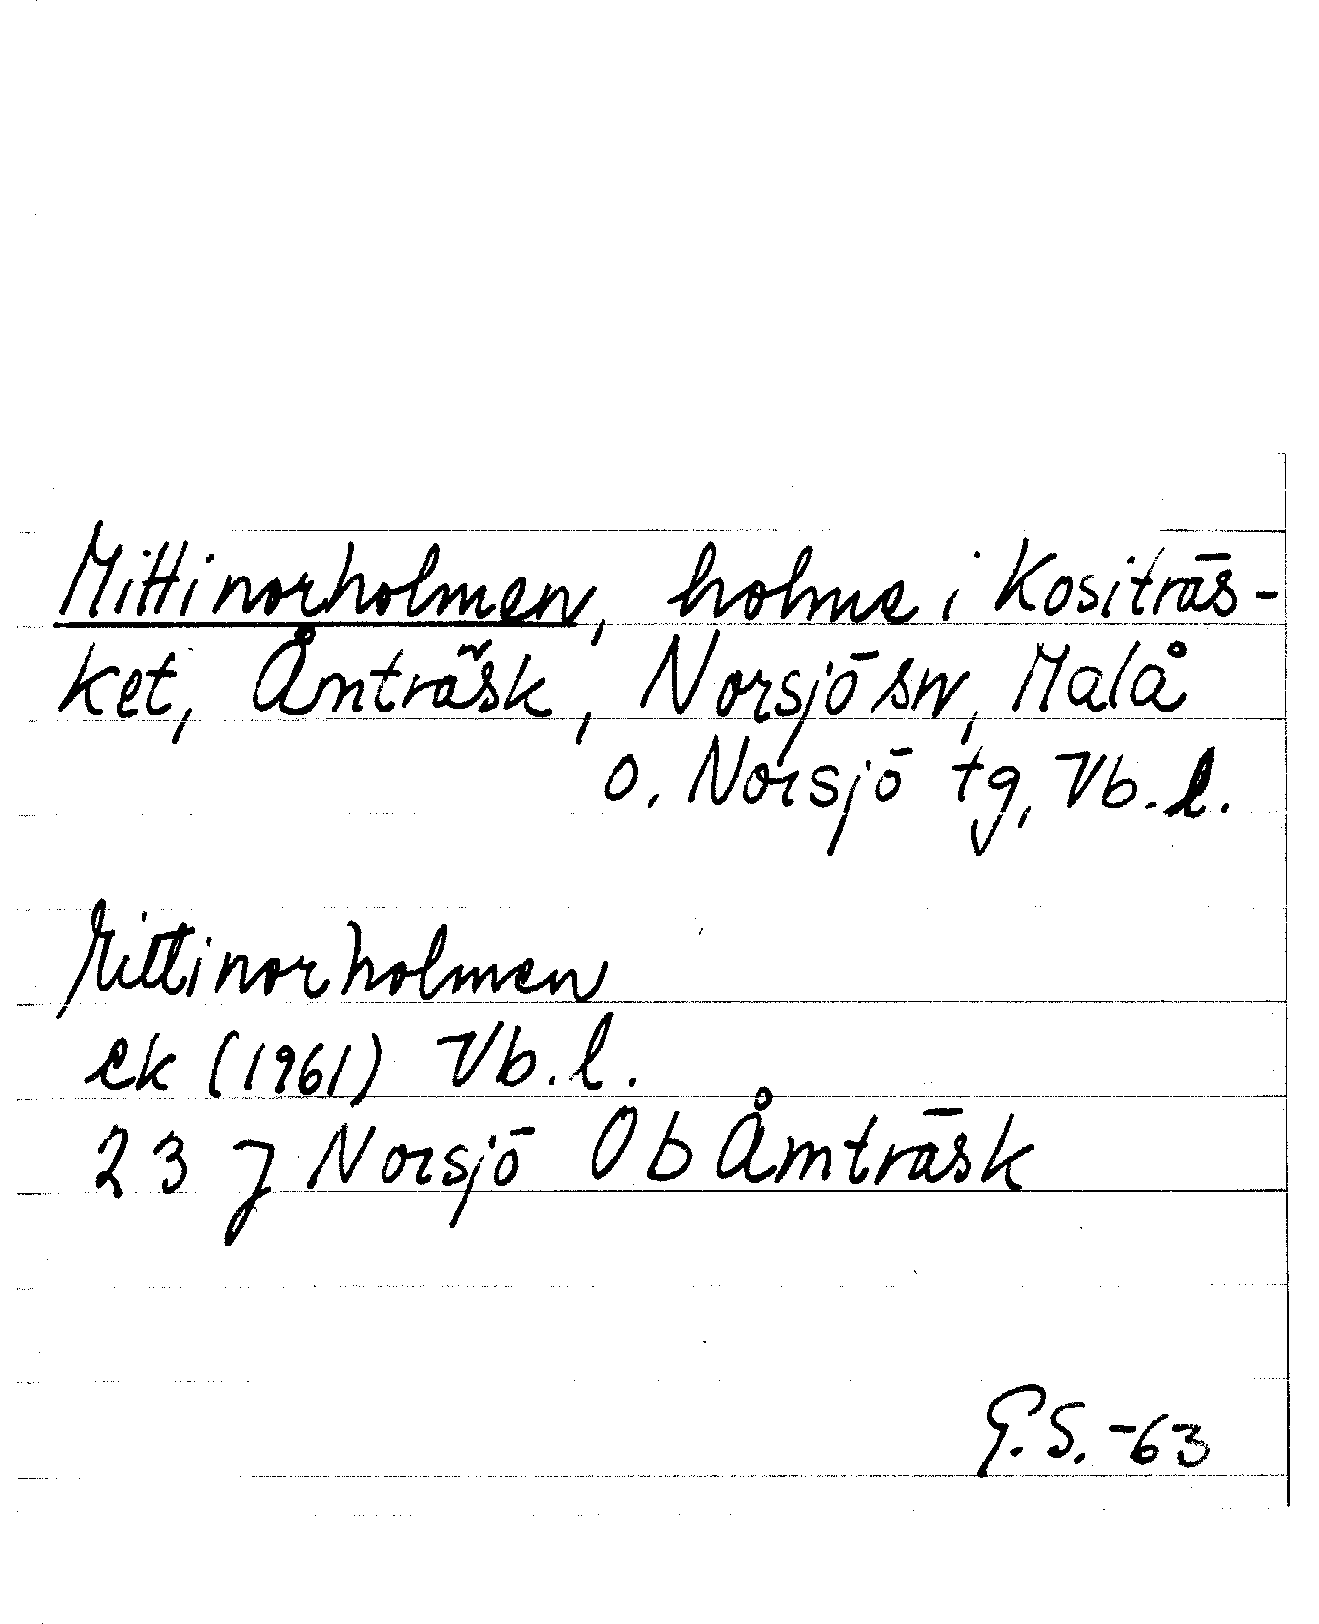 Mittinorholmen, holme i Kositräs-
ket, Åmträsk, Norsjö sn, Malå
o. Norsjö tg, Vb. l.
Mittinorholmen
ek (1961) Vb. l.
23 J Norsjö Ob Åmträsk
G.S. -63